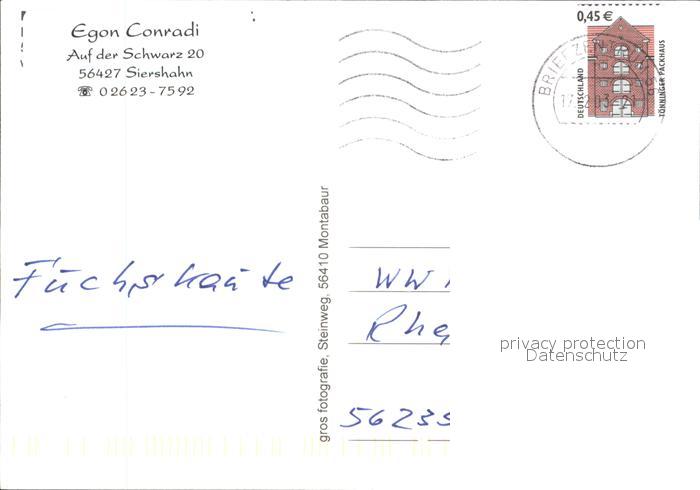 Egon Conradi
Auf der Schwarz 20
56427 Siershahn
☏ 02623-7592
0,45 €
DEUTSCHLAND
TÖNNINGER PACKHAUS
BRIEFZENTRUM
gros fotografie, Steinweg, 56410 Montabaur
Fuchskaute
WW
Rhe
56235
privacy protection
Datenschutz